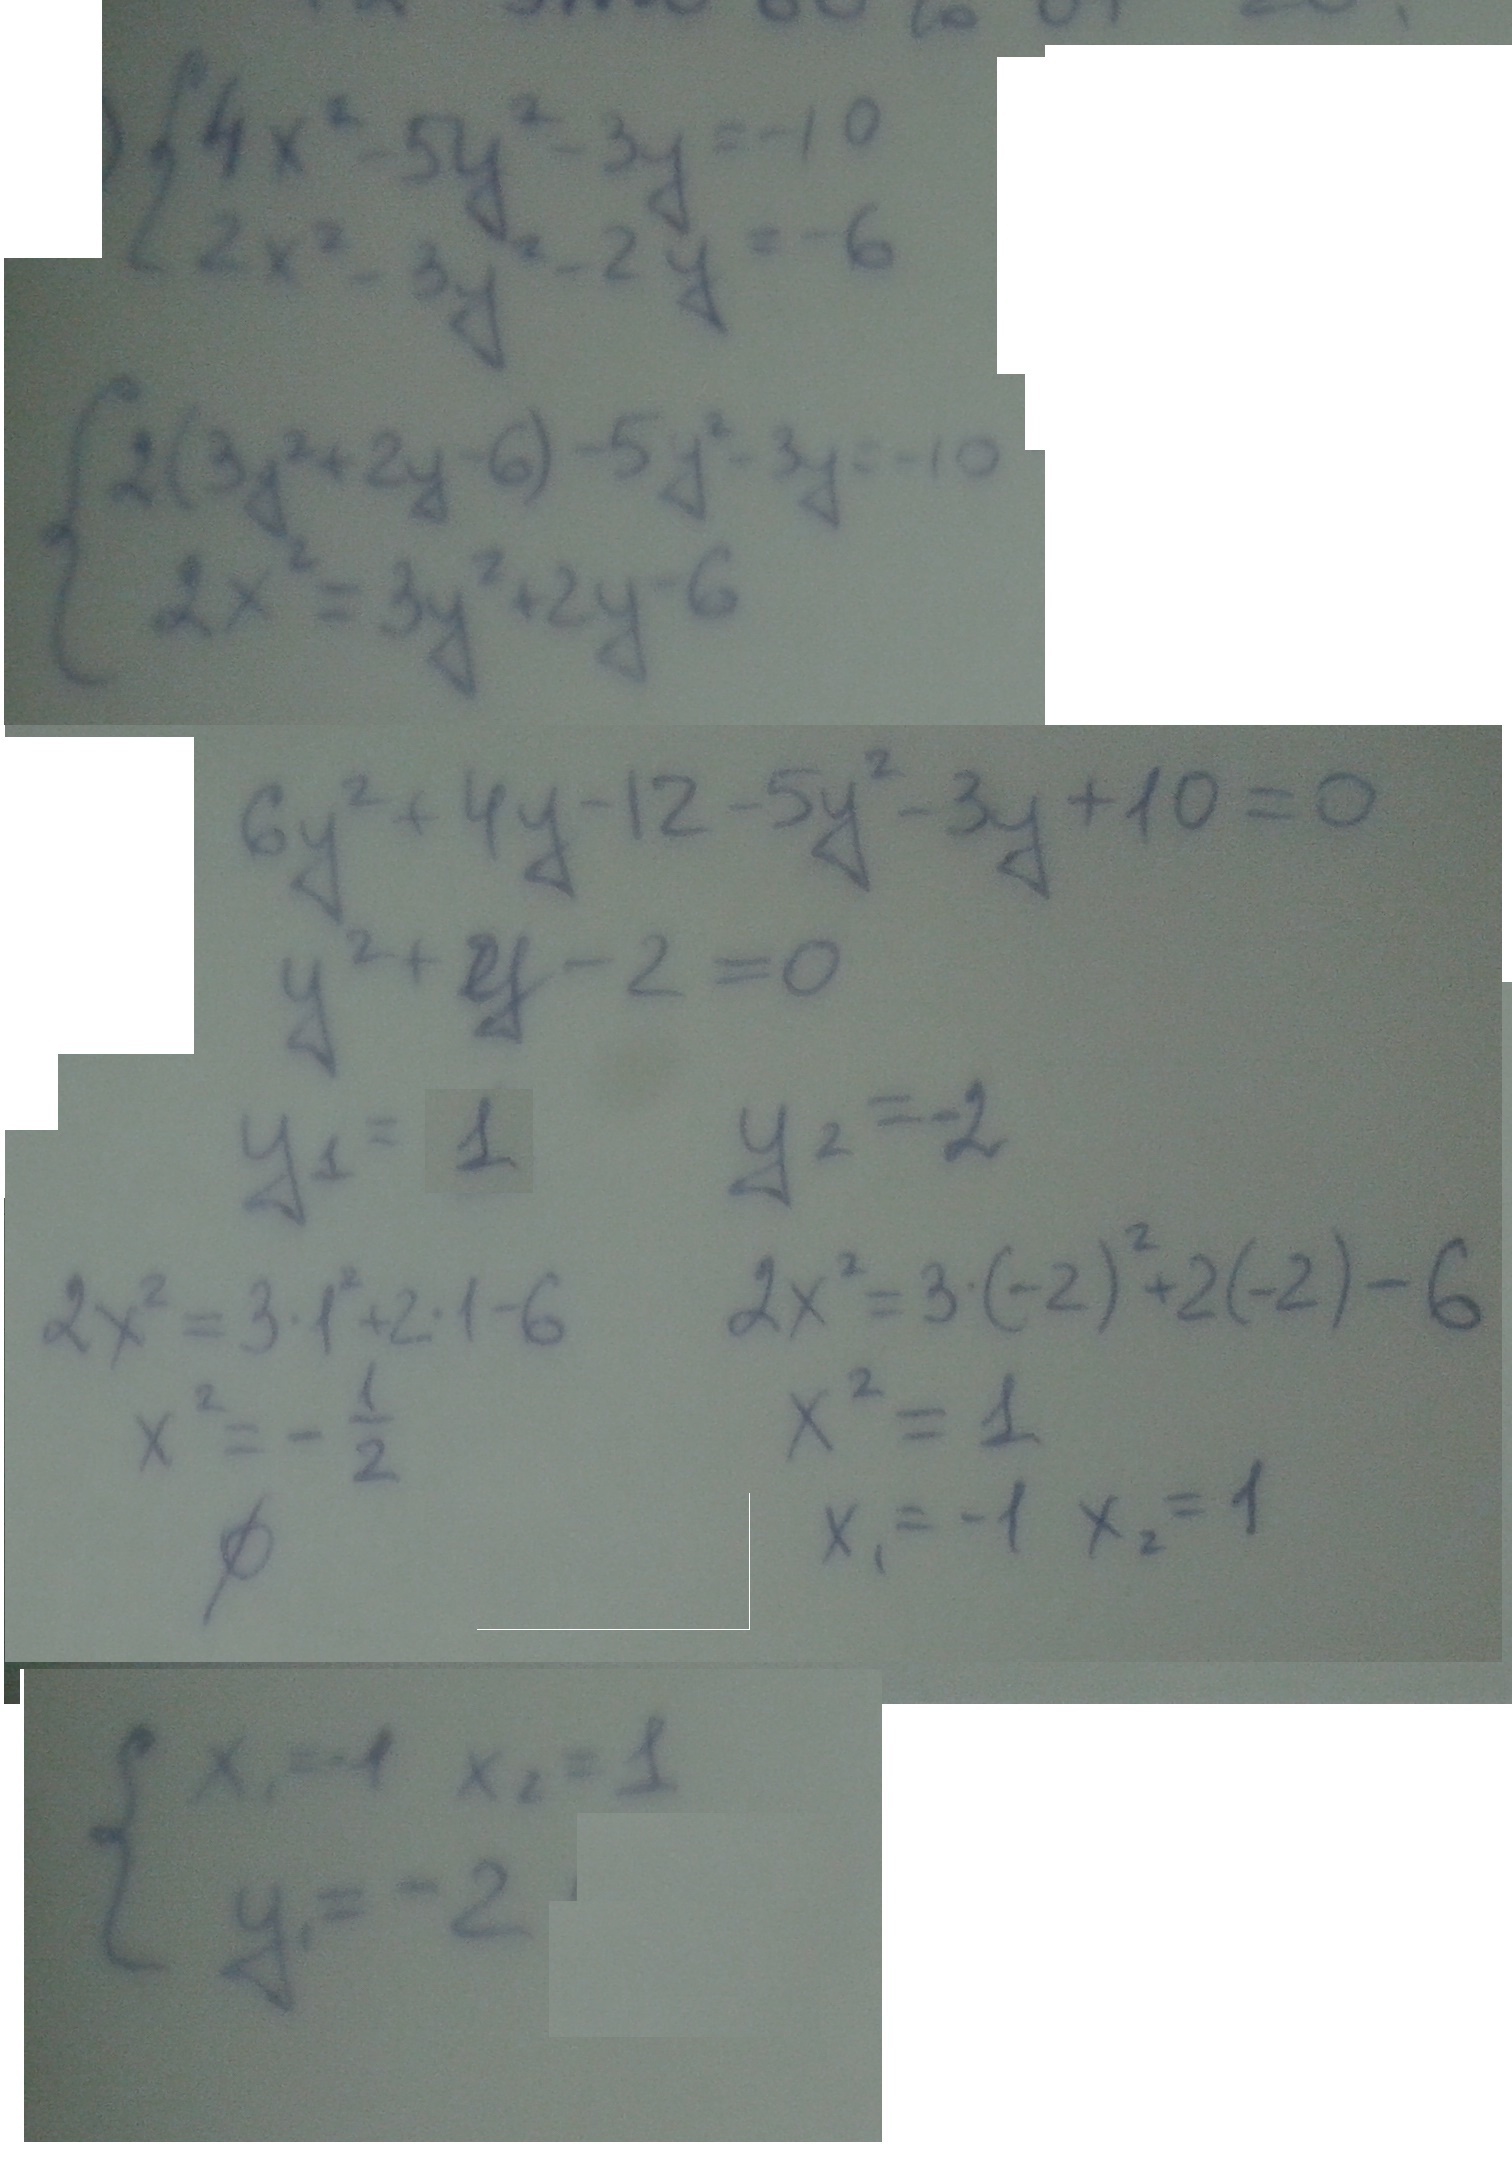 { 4x² - 5y² - 3y = -10
2x² - 3y² - 2y = -6
{ 2(3y² + 2y - 6) - 5y² - 3y = -10
2x² = 3y² + 2y - 6
6y² + 4y - 12 - 5y² - 3y + 10 = 0
y² + y - 2 = 0
y₁ = 1 y₂ = -2
2x² = 3·1² + 2·1 - 6 2x² = 3·(-2)² + 2(-2) - 6
x² = -1/2 x² = 1
∅ x₁ = -1 x₂ = 1
{ x₁ = -1 x₂ = 1
y₁ = -2